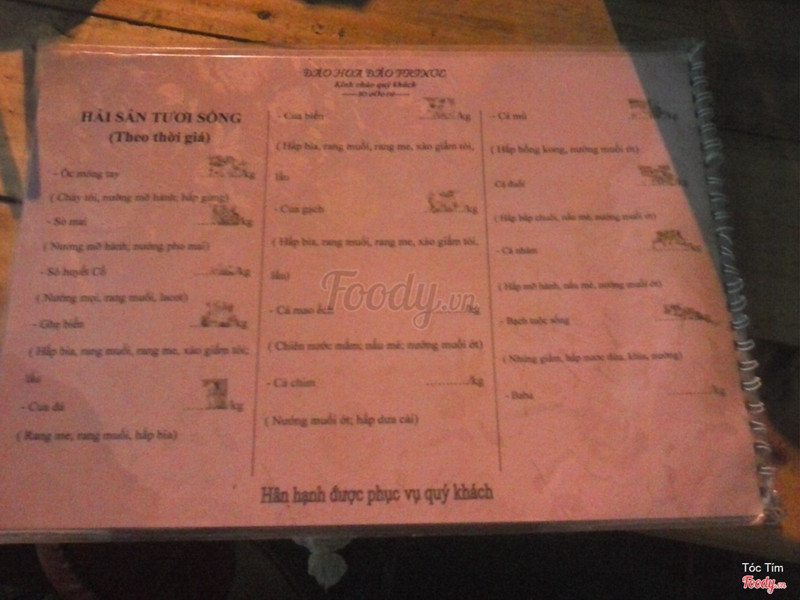 ĐẢO HOA ĐẢO
Kính chào quý khách
HẢI SẢN TƯƠI SỐNG
(Theo thời giá)
- Ốc móng tay /kg
( Cháy tỏi, nướng mỡ hành; hấp gừng)
- Sò mai /kg
( Nướng mỡ hành; nướng pho mai)
- Sò huyết Cồ /kg
( Nướng mọi, rang muối, lacot)
- Ghẹ biển /kg
( Hấp bia, rang muối, rang me, xào giấm tỏi;
lẩu
- Cua đá /kg
( Rang me; rang muối, hấp bia)
- Cua biển /kg
( Hấp bia, rang muối, rang me, xào giấm tỏi,
lẩu
- Cua gạch /kg
( Hấp bia, rang muối, rang me, xào giấm tỏi,
lẩu)
- Cá mao ếch /kg
( Chiên nước mắm; nấu mẻ; nướng muối ớt)
- Cá chim /kg
( Nướng muối ớt; hấp dưa cải)
- Cá mú /kg
( Hấp hồng kong, nướng muối ớt)
Cá đuối /kg
( Hấp bắp chuối, nấu mẻ, nướng muối ớt)
- Cá nhám /kg
( Hấp mỡ hành, nấu mẻ, nướng muối ớt)
- Bạch tuộc sống
( Nhúng giấm, hấp nước dừa, khìa, nướng)
- Baba /kg
Hân hạnh được phục vụ quý khách
Foody.vn
Tóc Tím
Foody.vn